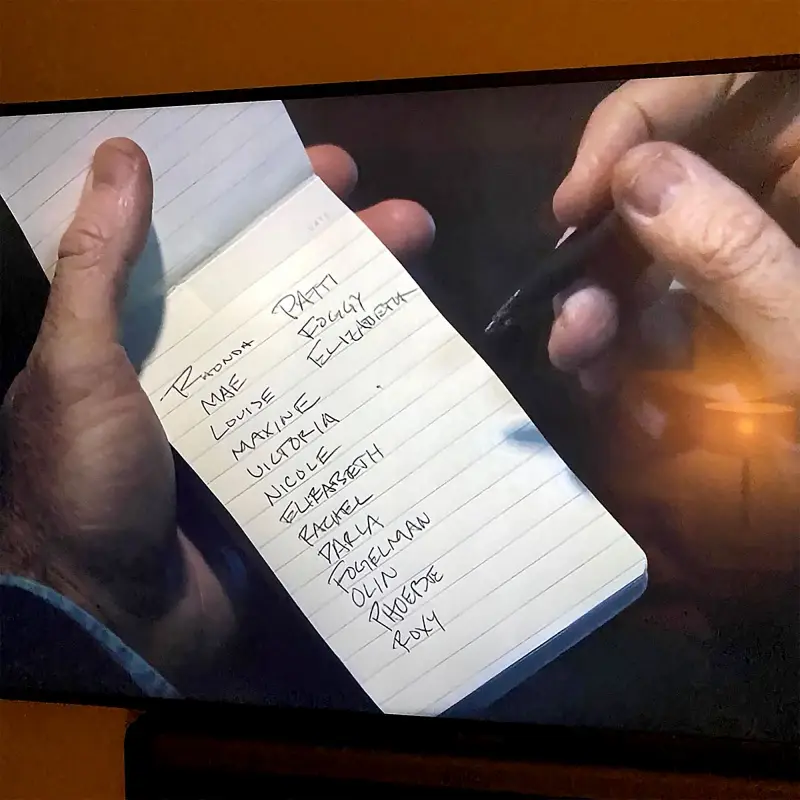 DATE
RHONDA
MAE
LOUISE
MAXINE
VICTORIA
NICOLE
ELIZABETH
RACHEL
DARLA
FOGELMAN
OLIN
PHOEBIE
ROXY
PATTI
FOGGY
ELIZABETH